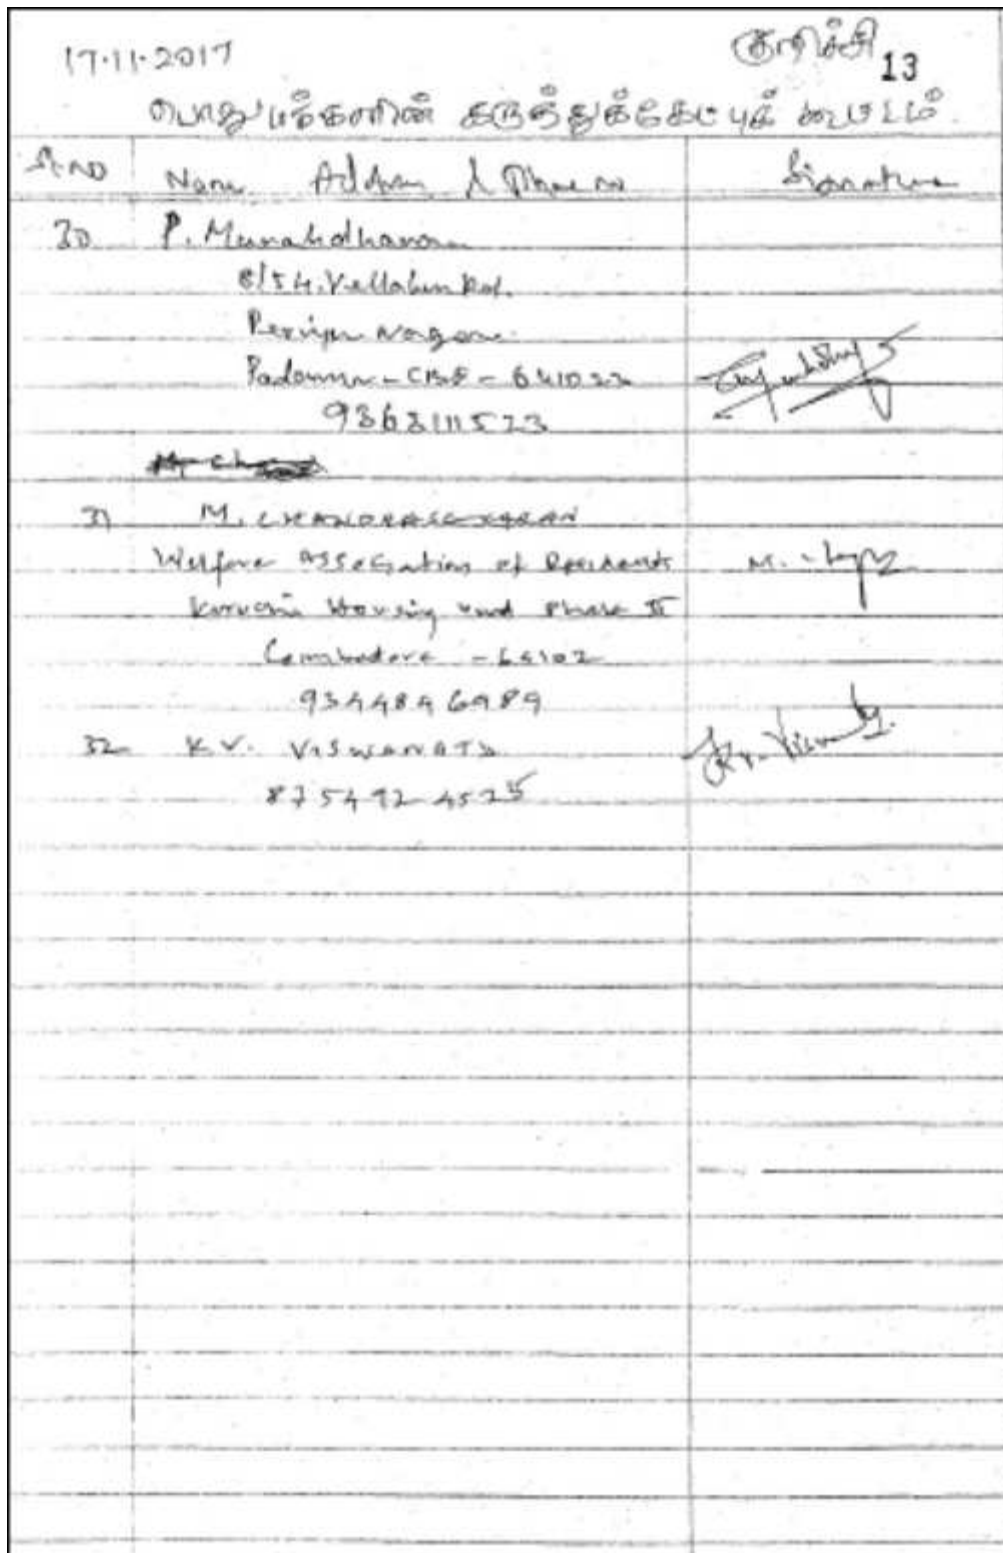 17.11.2017 குறிச்சி 13
பொதுமக்களின் கருத்துக்கேட்புக் கூட்டம்
Sl.No Name Address & Phone no Signature
30 P.
8/54, Road.
Periyar Nagar
- CBE - 641023
9363111523
31 M. CHANDRASEKARAN
Welfare Association of Residents
Kurichi Housing Unit Phase II
Coimbatore - 64102
9344846989
32 K.V. VISWANATH
875492 4525